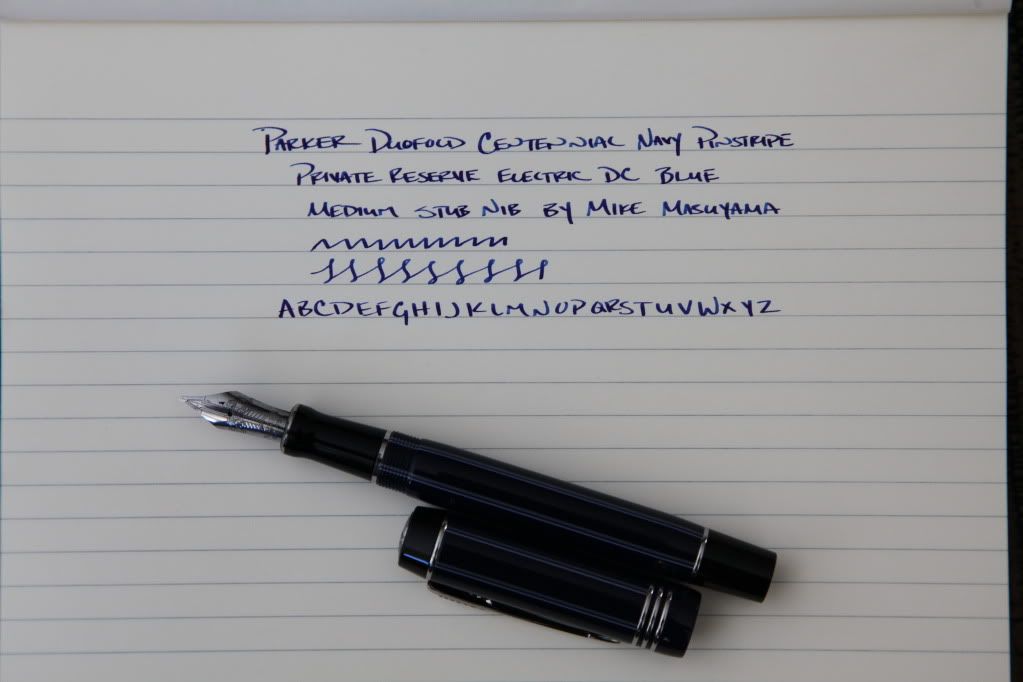 Parker Duofold Centennial Navy Pinstripe
Private Reserve Electric DC Blue
Medium Stub Nib by Mike Masuyama
ABCDEFGHIJKLMNOPQRSTUVWXYZ